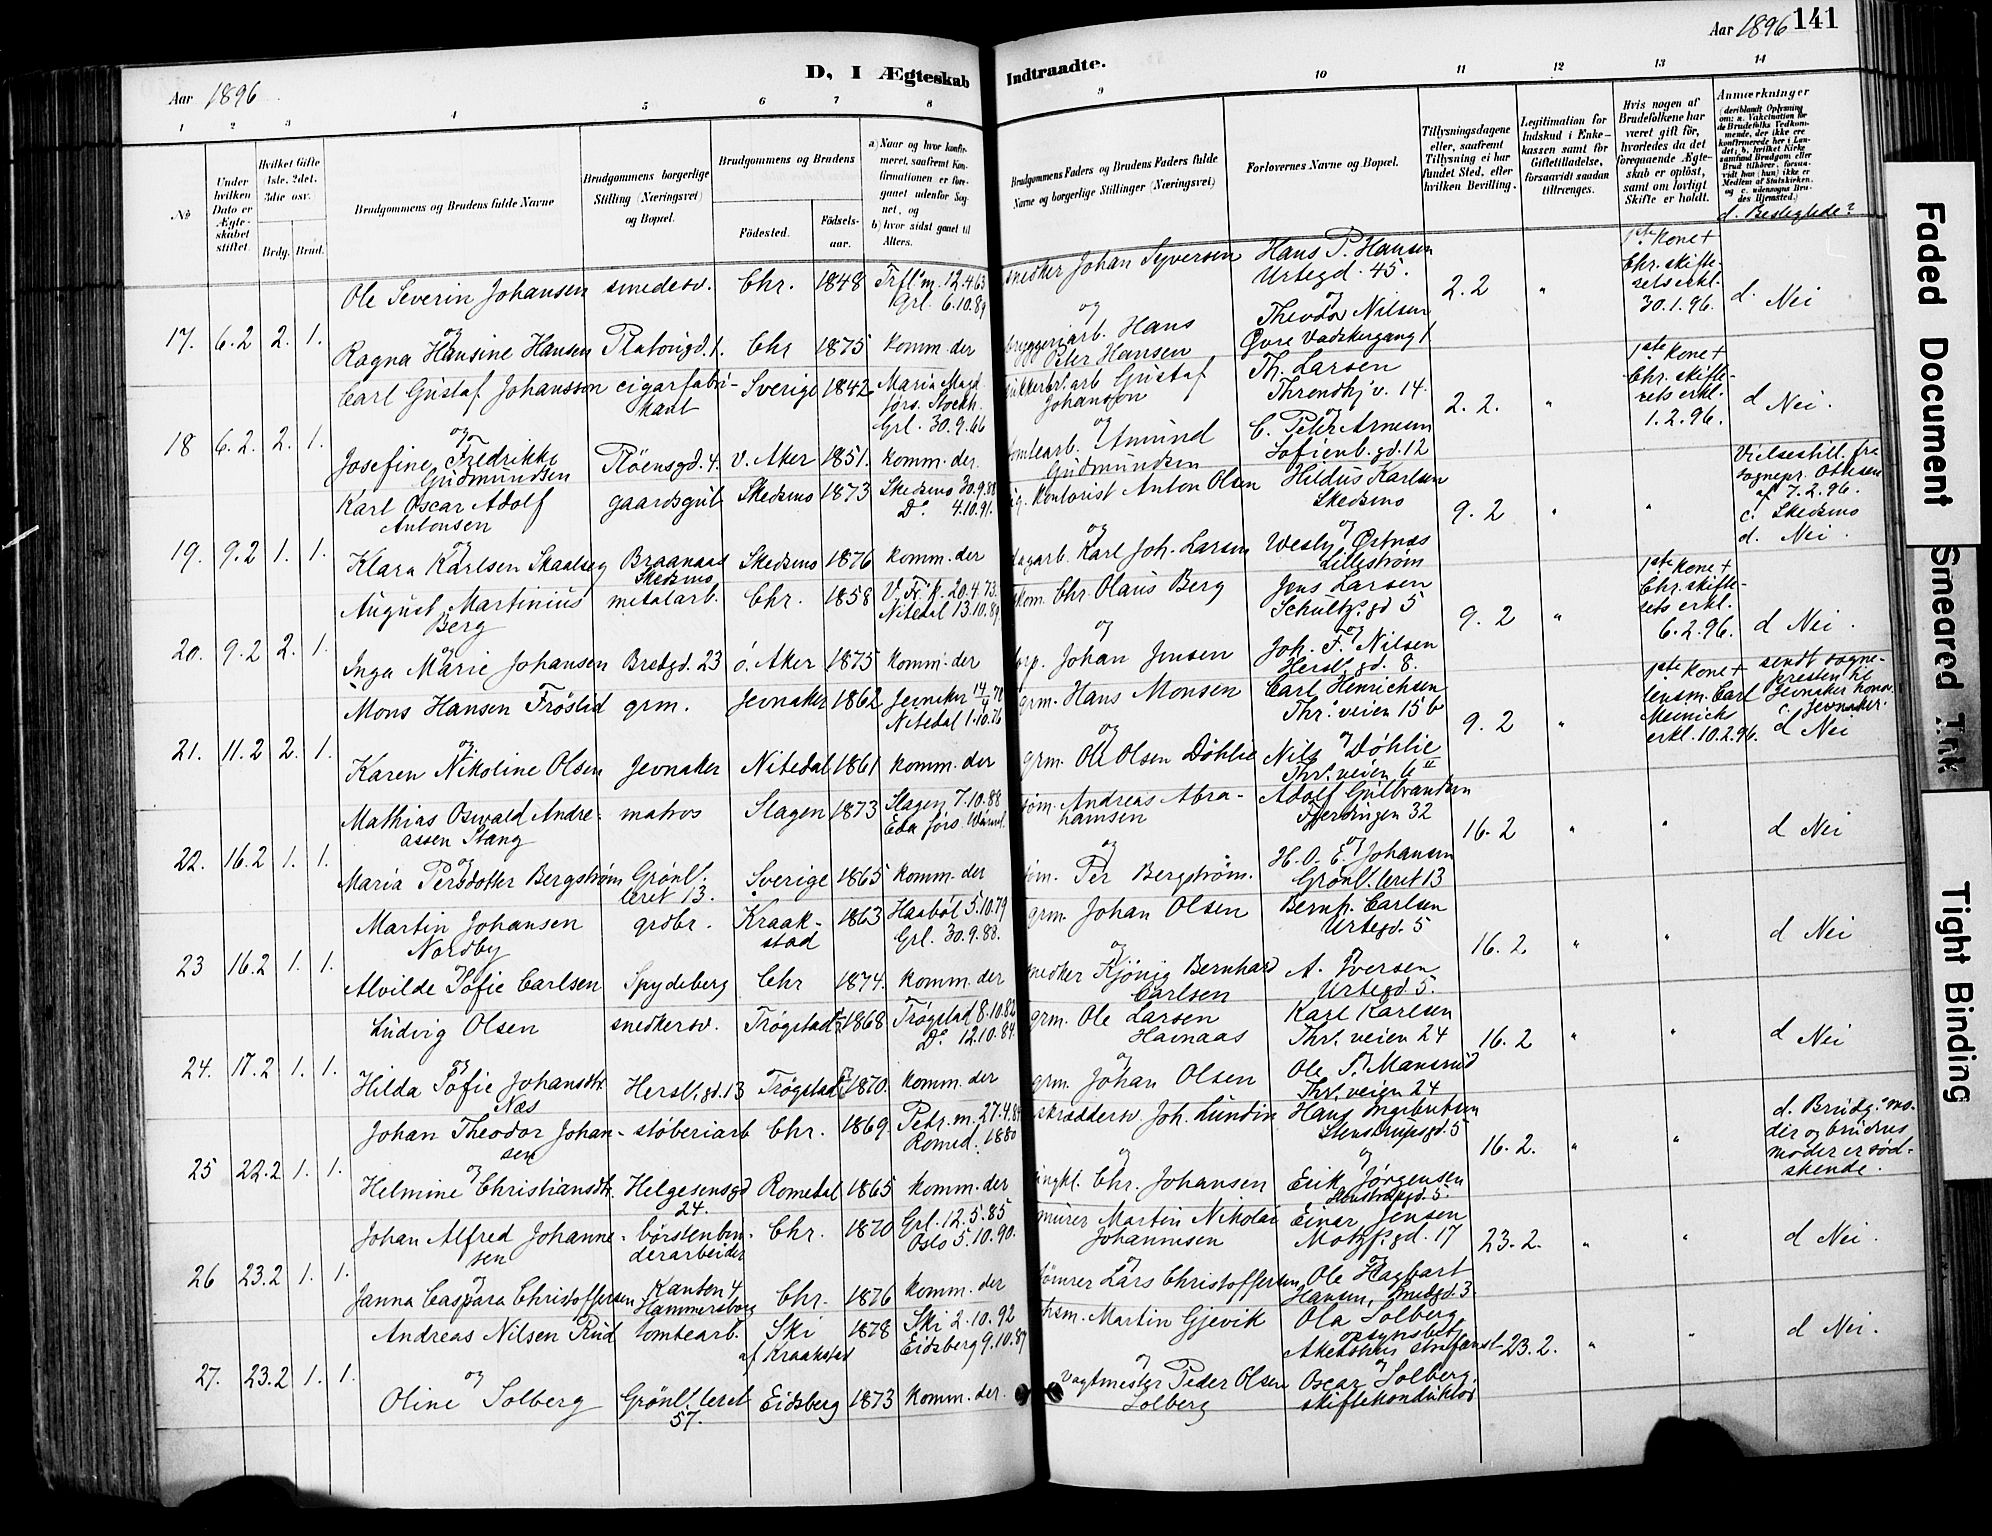 Aar 1896
D, I Ægteskab Indtraadte.
Aar 1896 141
1 2 3 4 5 6 7 8 9 10 11 12 13 14
No
Under hvilken Dato er Ægteskabet stiftet.
Hvilket Gifte 1ste, 2det, 3die osv.
Brdg. Brud.
Brudgommens og Brudens fulde Navne
Brudgommens borgerlige Stilling (Næringsvei) og Bopæl.
Brudgommens og Brudens
Fødested.
Fødselsaar.
a) Naar og hvor konfirmeret, saafremt Konfirmationen er foregaaet udenfor Sognet, og
b) hvor sidst gaaet til Alters.
Brudgommens Faders og Brudens Faders fulde Navne og borgerlige Stillinger (Næringsvei)
Forlovernes Navne og Bopæl.
Tillysningsdagene eller, saafremt Tillysning ei har fundet Sted, efter hvilken Bevilling.
Legitimation for Indskud i Enkekassen samt for Giftetilladelse, forsaavidt saadan tiltrænges.
Hvis nogen af Brudefolkene har været gift før, hvorledes da det foregaaende Ægteskab er opløst, samt om lovligt Skifte er holdt.
Anmærkninger
d. Beslegtede?
17. 6.2 2. 1.
Ole Severin Johansen smedesv. Chr. 1848 Trefl.m. 12.4.63 Grl. 6.10.89
snedker Johan Syversen Hans P. Hansen Urtegd. 45. 2.2 " 1ste Kone + Chr. skifterets erkl. 30.1.96. d. Nei
og
Ragna Hansine Hansen Platousgd. 1. Chr 1875 komm. der
bryggeriarb. Hans Peter Hansen Theodor Nilsen Øvre Vadskergang 1
18 6.2. 2. 1.
Carl Gustaf Johansson cigarfabrikant Sverige 1842 Maria Magd. förs. Stockh. Grl. 30.9.66
sukkerbr.arb Gustaf Johansson Th. Larsen Throndhj v. 14. 2.2. " 1ste Kone + Chr. skifterets erkl. 1.2.96. d Nei.
og
Josefine Fredrikke Gudmundsen Fløensgd. 4. V. Aker 1851. komm. der.
tomtearb. Amund Gudmundsen C. Peter Arnesen Sofienb.gd. 12
19. 9.2 1. 1.
Karl Oscar Adolf Antonsen gaardsgut Skedsmo 1873 Skedsmo 30.9.88 Do. 4.10.91.
kontorist Anton Olsen Hildus Karlsen Skedsmo 9.2 " " Vielsestill. fra sognepr. Ottesen af 7.2.96. c. Skedsmo d. Nei.
og
Klara Karlsen Skaalseg Braanaas Skedsmo Skedsmo 1876 komm. der
dagarb. Karl Joh. Larsen Wesly Østnæs Lillestrøm
20. 9.2 2. 1.
August Martinius Berg metalarb. Chr. 1858 V. Fr. K. 20.4.73. Nitedal 13.10.89
Chr. Olaus Berg Jens Larsen Schultz.gd 5 9.2 " 1ste Kone + Chr. skifterets erkl. 6.2.96. d Nei.
og
Inga Marie Johansen Bredgd. 23 ö. Aker 1875 komm. der
Johan Jensen Joh. F. Nilsen Hersl. gd. 8.
21. 11.2 2. 1.
Mons Hansen Frøslid grm. Jevnaker 1862 Jevnaker 14/4 78 Nitedal 1.10.76
grm. Hans Monsen Carl Henrichsen Thr. veien 15b 9.2 " 1ste Kone + lensm. Carl Meinichs erkl. 10.2.96. sendt sognepresten til Jevnaker c. Jevnaker. d Nei
og
Karen Nikoline Olsen Jevnaker Nitedal 1861 komm. der
grm. Ole Olsen Døhlie Nils Døhlie Thr. veien 6 II
22. 16.2 1. 1.
Mathias Oswald Andreassen Stang matros Slagen 1873 Slagen 7.10.88 Eda förs. Värml.
Andreas Abrahamsen Adolf Gulbrandsen Fjerdingen 32 16.2 " " d Nei
og
Maria Persdotter Bergström Grönl. leret 13. Sverige 1865 komm. der
Per Bergstrøm. H. O. E. Johansen Grønl. leret 13
23 16.2 1. 1.
Martin Johansen Nordby grdbr. Kraakstad 1863 Haabøl 5.10.79 Grl. 30.9.88.
grm. Johan Olsen Bernh. Carlsen Urtegd. 5 16.2 " " d Nei
og
Alvilde Sofie Carlsen Spydeberg Chr 1874. komm. der
snedker Kjönig Bernhard Carlsen A. Iversen Urtegd. 5.
24. 17.2 1. 1.
Ludvig Olsen snedkersv. Trøgstad 1868 Trøgstad 8.10.82 Do. 12.10.84.
grm. Ole Larsen Havnaas Karl Karlsen Thr. veien 24 16.2 " " d Nei
og
Hilda Sofie Johansdtr. Næs Hersl. gd. 13 Trøgstad 1870. komm. der
grm. Johan Olsen Ole P. Mansrud Thr. veien 24
25 22.2 1. 1.
Johan Theodor Johansen støberiarb Chr. 1869. Petr. m. 27.4.84 Romed. 1880
skrædderm Joh. Lundin Hans Ingebretsen Stenstrupsgd. 5 16.2. " " d. Brudg. moder og brudens moder er sødskende.
og
Helmine Christiansdtr. Helgesensgd 24. Romedal 1865 komm. der
Chr. Johansen Erik Jørgensen Stenstrupgd. 5.
26 23.2 1. 1.
Johan Alfred Johannesen børstenbinderarbeider Chr. 1870 Grl. 12.5.85 Oslo 5.10.90.
murer Martin Nikolai Johannesen Einar Jensen Motzf. gd. 17 23.2. " " d Nei.
og
Janna Caspara Christoffersen Kanton 4 Hammersborg Chr. 1876 komm. der
tømrer Lars Christoffersen Ole Hagbart Hansen, Smedgd. 3
27. 23.2 1. 1.
Andreas Nilsen Rud tomtearb. Ski af Kraakstad 1878 Ski 2.10.92 Eidsberg 9.10.87
hsm. Martin Gjevik Ola Solberg opsynsbetj. Akershus strafanst. 23.2. " " d Nei.
og
Oline Solberg Grönl. leret 57. Eidsberg 1873 komm. der.
Vagtmester Peder Olsen Solberg Oscar Solberg. skiftekonduktør
Faded Document
Smeared Ink
Tight Binding